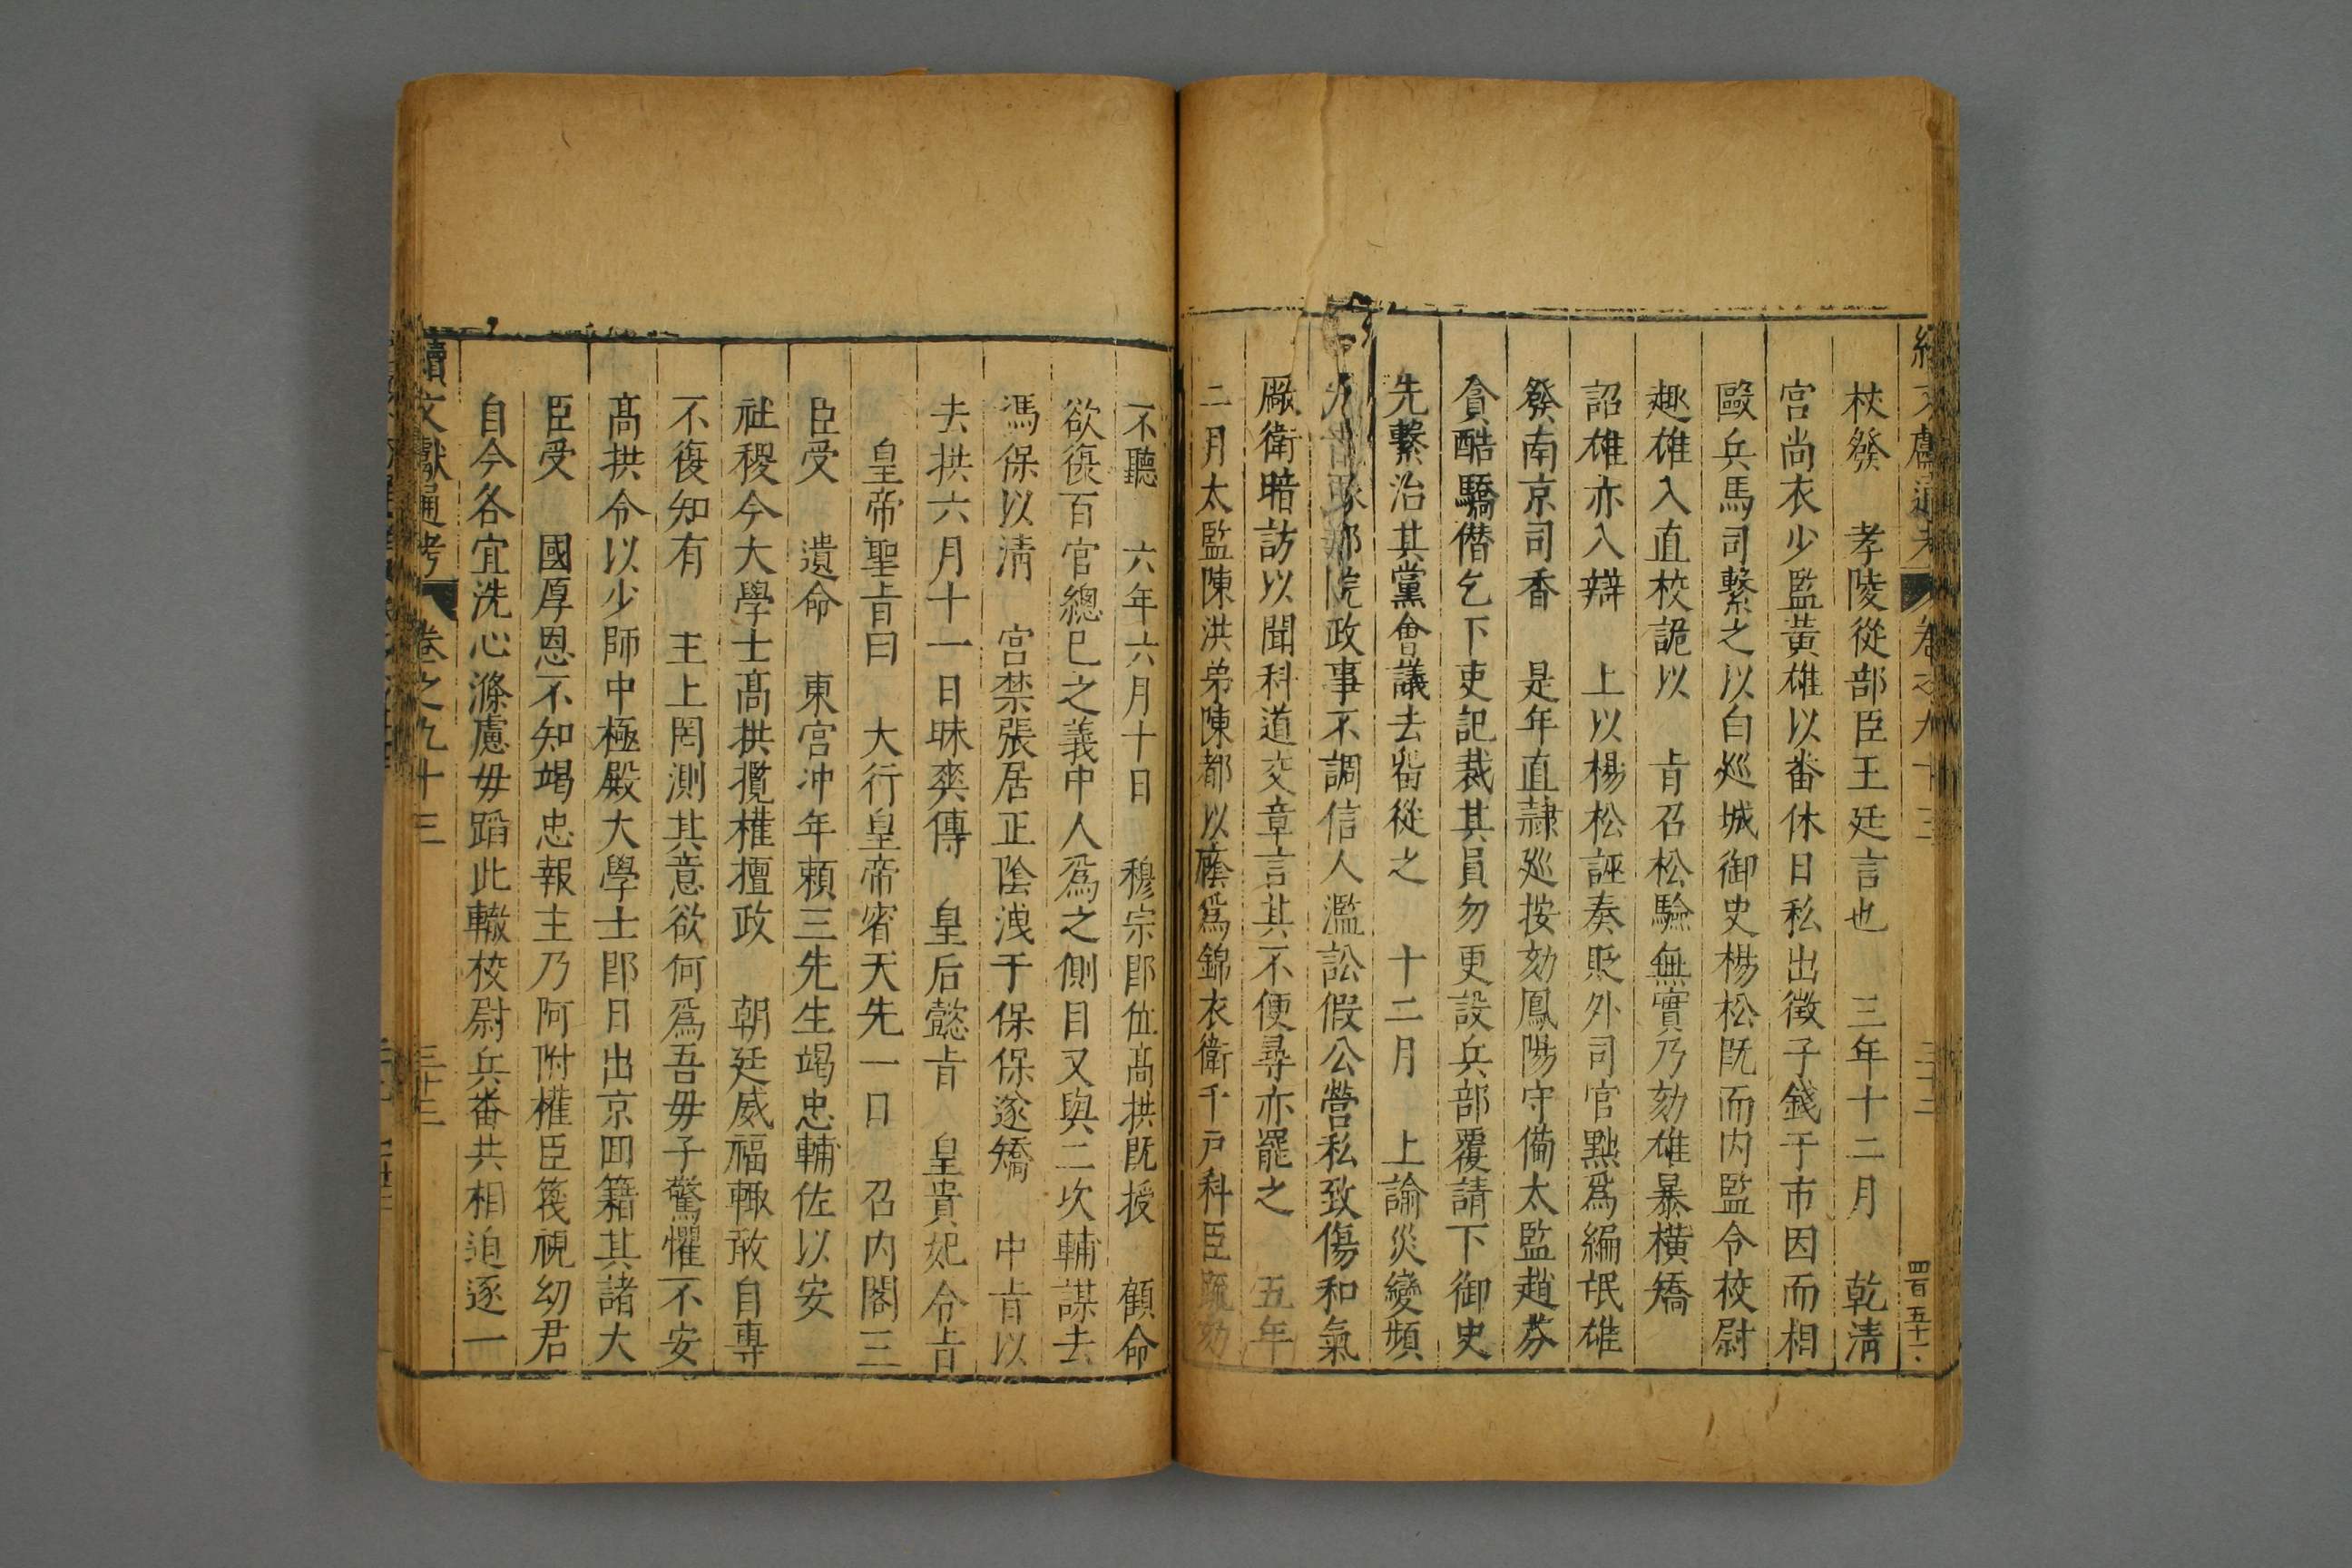 續文獻通考 卷之九十三 三十二 四百五十一
杖發 孝陵從部臣王廷言也 三年十二月 乾淸
宮尚衣少監黃雄以畨休日私出徴子錢于市因而相
毆兵馬司繫之以白廵城御史楊松旣而内監令校尉
趣雄入直校詭以 㫖召松驗無實乃劾雄暴横矯
詔雄亦入辯 上以楊松誣奏貶外司官㸃爲編氓雄
發南京司香 是年直隷廵按劾鳳陽守備太監趙芬
貪酷驕僭乞下吏記裁其員勿更設兵部覆請下御史
先繫治其黨會議去畱從之 十二月 上諭災變頻
仍皆 部院政事不調信人濫訟假公營私致傷和氣
厰衛暗訪以聞科道交章言其不便尋亦罷之 五年
二月太監陳洪弟陳都以廕爲錦衣衛千戸科臣疏劾
不聽 六年六月十日 穆宗即位髙拱旣授 顧命
欲復百官總已之義中人爲之側目又與二次輔謀去
馮保以淸 宮禁張居正隂洩于保保遂矯 中㫖以
去拱六月十一日昧爽傳 皇后懿㫖 皇貴妃令㫖
皇帝聖㫖曰 大行皇帝賔天先一日 召内閣三
臣受 遺命 東宮冲年頼三先生竭忠輔佐以安
社稷今大學士髙拱攬權擅政 朝廷威福輙敢自專
不復知有 主上罔測其意欲何爲吾毋子驚懼不安
髙拱令以少師中極殿大學士即日出京囬籍其諸大
臣受 國厚恩不知竭忠報主乃阿附權臣篾視幼君
自今各宜洗心滌慮毋蹈此轍校尉兵畨共相迫逐一
續文獻通考 卷之九十三 三十三